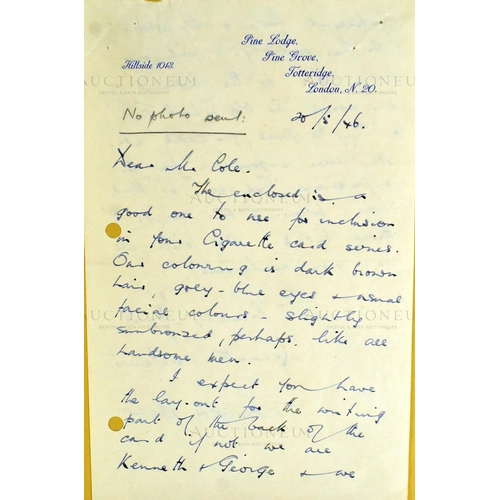 Pine Lodge,
Pine Grove,
Totteridge,
London, N. 20.
Hillside 1013.
No photo sent:
20/5/46.
Dear Mr Cole.
The enclosed is a
good one to use for inclusion
in your Cigarette card series.
Our colouring is dark brown
hair, grey-blue eyes & usual
facial colours - slightly
sunbronzed, perhaps. like all
handsome men.
I expect you have
the lay-out for the writing
part of the back of the
card if not we are
Kenneth & George & we
AUCTIONEUM